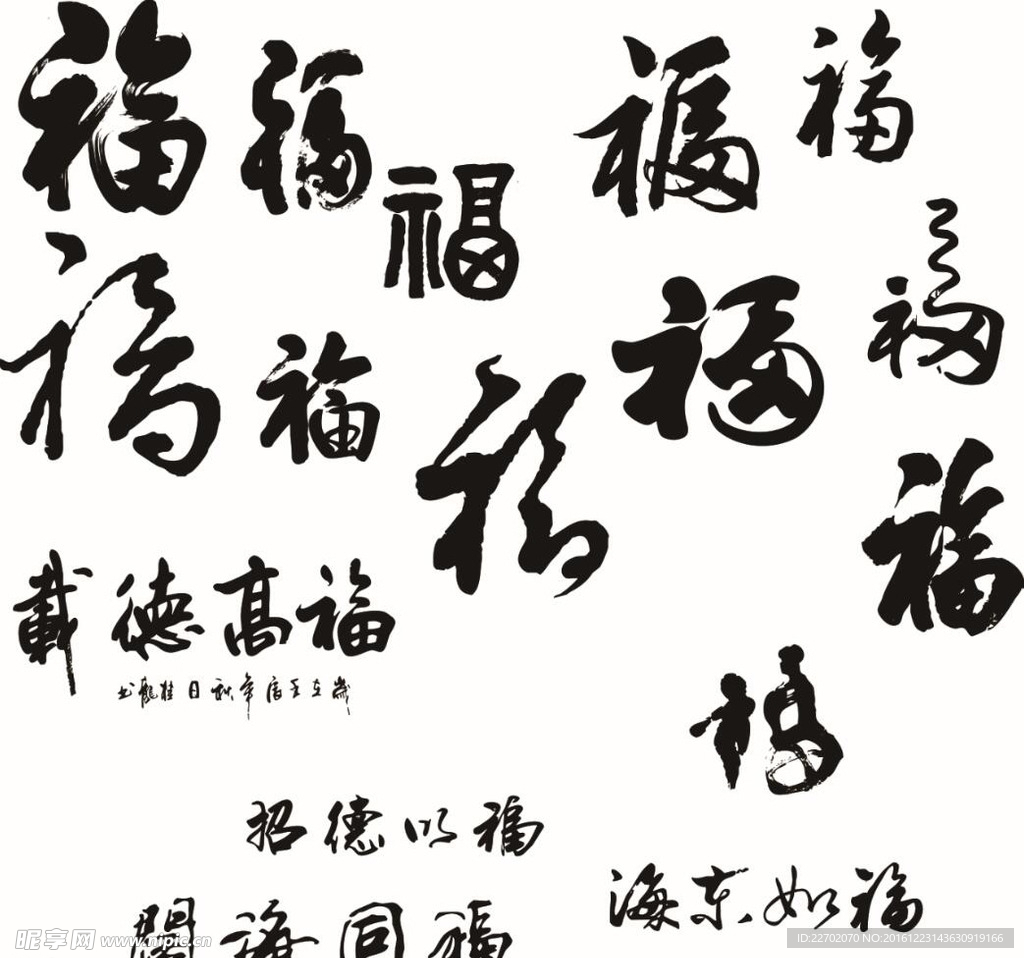 福
福
福
福
福
福
福
福
福
福
福
福
載德高福
福
招德以福
海東如福
同福
昵享网 www.nipic.cn
ID:22702070 NO:20161223143630919166